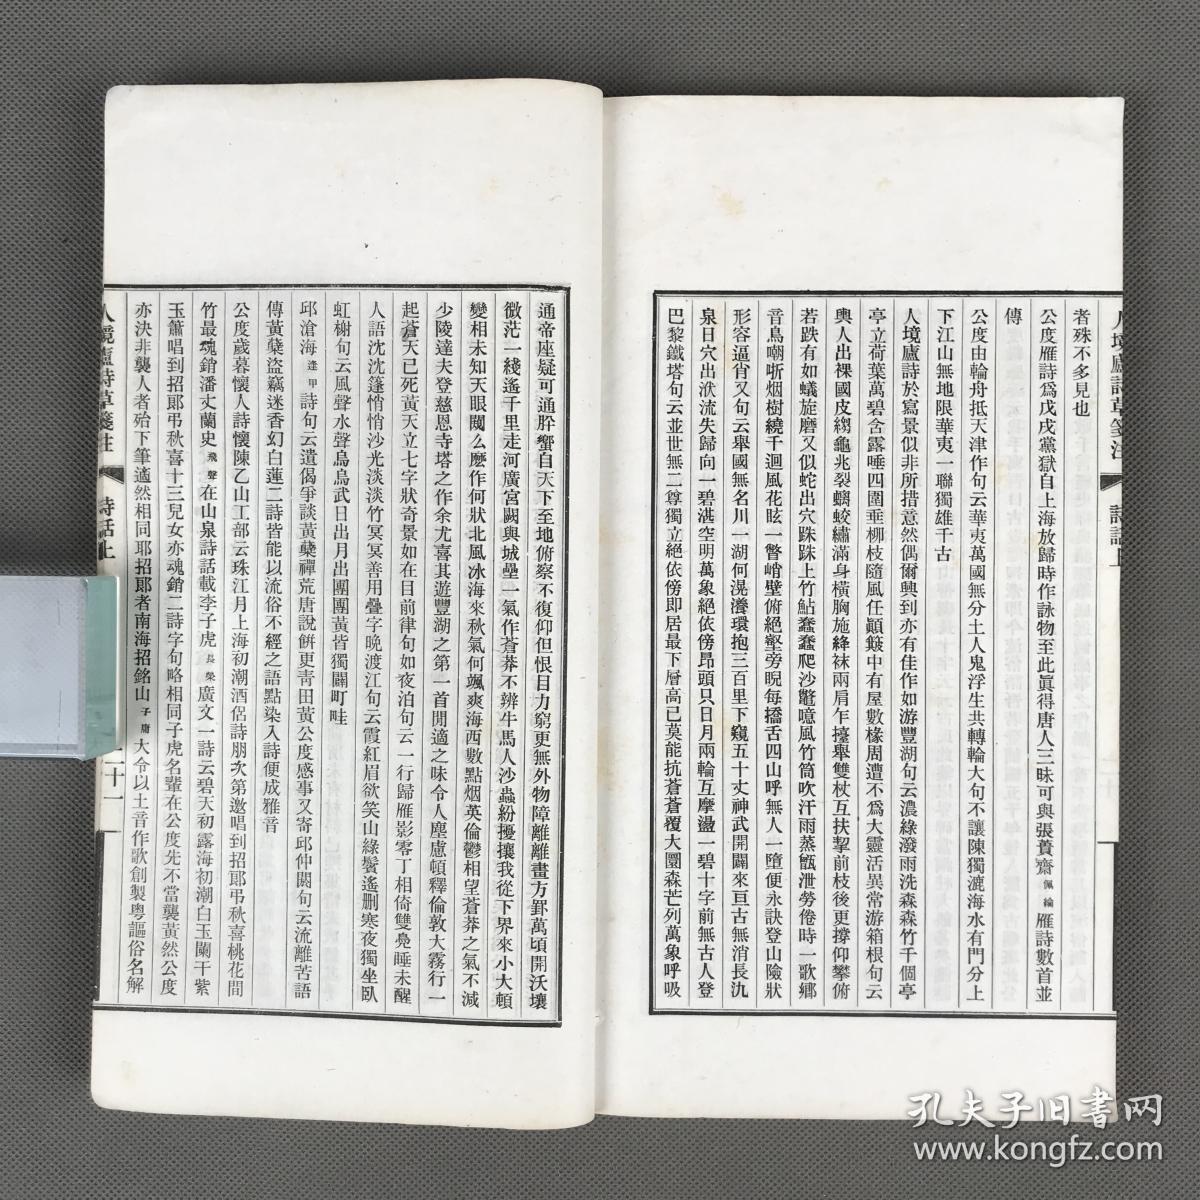 人境廬詩草箋注
詩話上
者殊不多見也
公度雁詩爲戊戌黨獄自上海放歸時作詠物至此眞得唐人三昧可與張蕢齋佩綸雁詩數首並
傳
公度由輪舟抵天津作句云華夷萬國無分土人鬼浮生共轉輪大句不讓陳獨漉海水有門分上
下江山無地限華夷一聯獨雄千古
人境廬詩於寫景似非所措意然偶爾興到亦有佳作如游豐湖句云濃綠潑雨洗森森竹千個亭
亭立荷葉萬碧含露唾四圍垂柳枝隨風任顚簸中有屋數椽周遭不爲大靈活異常游箱根句云
輿人出裸國皮縐龜兆裂螭蛟繡滿身橫胸施絳袜兩肩乍擡舉雙杖互扶挈前枝後更撐仰攀俯
若跌有如蟻旋磨又似蛇出穴趺趺上竹鮎蠢蠢爬沙鼈噫風竹筒吹汗雨蒸甑泄勞倦時一歌鄉
音鳥嘲哳烟樹繞千迴風花眩一瞥峭壁俯絕壑旁睨每撟舌四山呼無人一墮便永訣登山險狀
形容逼肖又句云舉國無名川一湖何滉瀁環抱三百里下窺五十丈神武開闢來亘古無消長氿
泉日穴出洑流失歸向一碧湛空明萬象絕依傍昂頭只日月兩輪互摩盪一碧十字前無古人登
巴黎鐵塔句云並世無二尊獨立絕依傍即居最下層高已莫能抗蒼蒼覆大圜森芒列萬象呼吸
通帝座疑可通肸蠁自天下至地俯察不復仰但恨目力窮更無外物障離離畫方罫萬頃開沃壤
微茫一綫遙千里走河廣宮闕與城壘一氣作蒼莽不辨牛馬人沙蟲紛擾攘我從下界來小大頓
變相未知天眼闚么麽作何狀北風冰海來秋氣何颯爽海西數點烟英倫鬱相望蒼莽之氣不減
少陵達夫登慈恩寺塔之作余尤喜其遊豐湖之第一首閒適之味令人塵慮頓釋倫敦大霧行一
起蒼天已死黃天立七字狀奇景如在目前律句如夜泊句云一行歸雁影零丁相倚雙鳧睡未醒
人語沈沈篷悄悄沙光淡淡竹冥冥善用疊字晚渡江句云霞紅眉欲笑山綠鬢遙删寒夜獨坐臥
虹榭句云風聲水聲烏烏武日出月出團團黃皆獨闢町畦
邱滄海逢甲詩句云遺偈爭談黃蘗禪荒唐說餅更青田黃公度感事又寄邱仲閼句云流離苦語
傳黃蘗盜竊迷香幻白蓮二詩皆能以流俗不經之語點染入詩便成雅音
公度歲暮懷人詩懷陳乙山工部云珠江月上海初潮酒侶詩朋次第邀唱到招郎弔秋喜桃花間
竹最魂銷潘丈蘭史飛聲在山泉詩話載李子虎長榮廣文一詩云碧天初露海初潮白玉闌干紫
玉簫唱到招郎弔秋喜十三兒女亦魂銷二詩字句略相同子虎名輩在公度先不當襲黃然公度
亦決非襲人者殆下筆適然相同耶招郎者南海招銘山子庸大令以土音作歌創製粵謳俗名解
人境廬詩草箋注
詩話上
二十一
孔夫子旧書网
www.kongfz.com